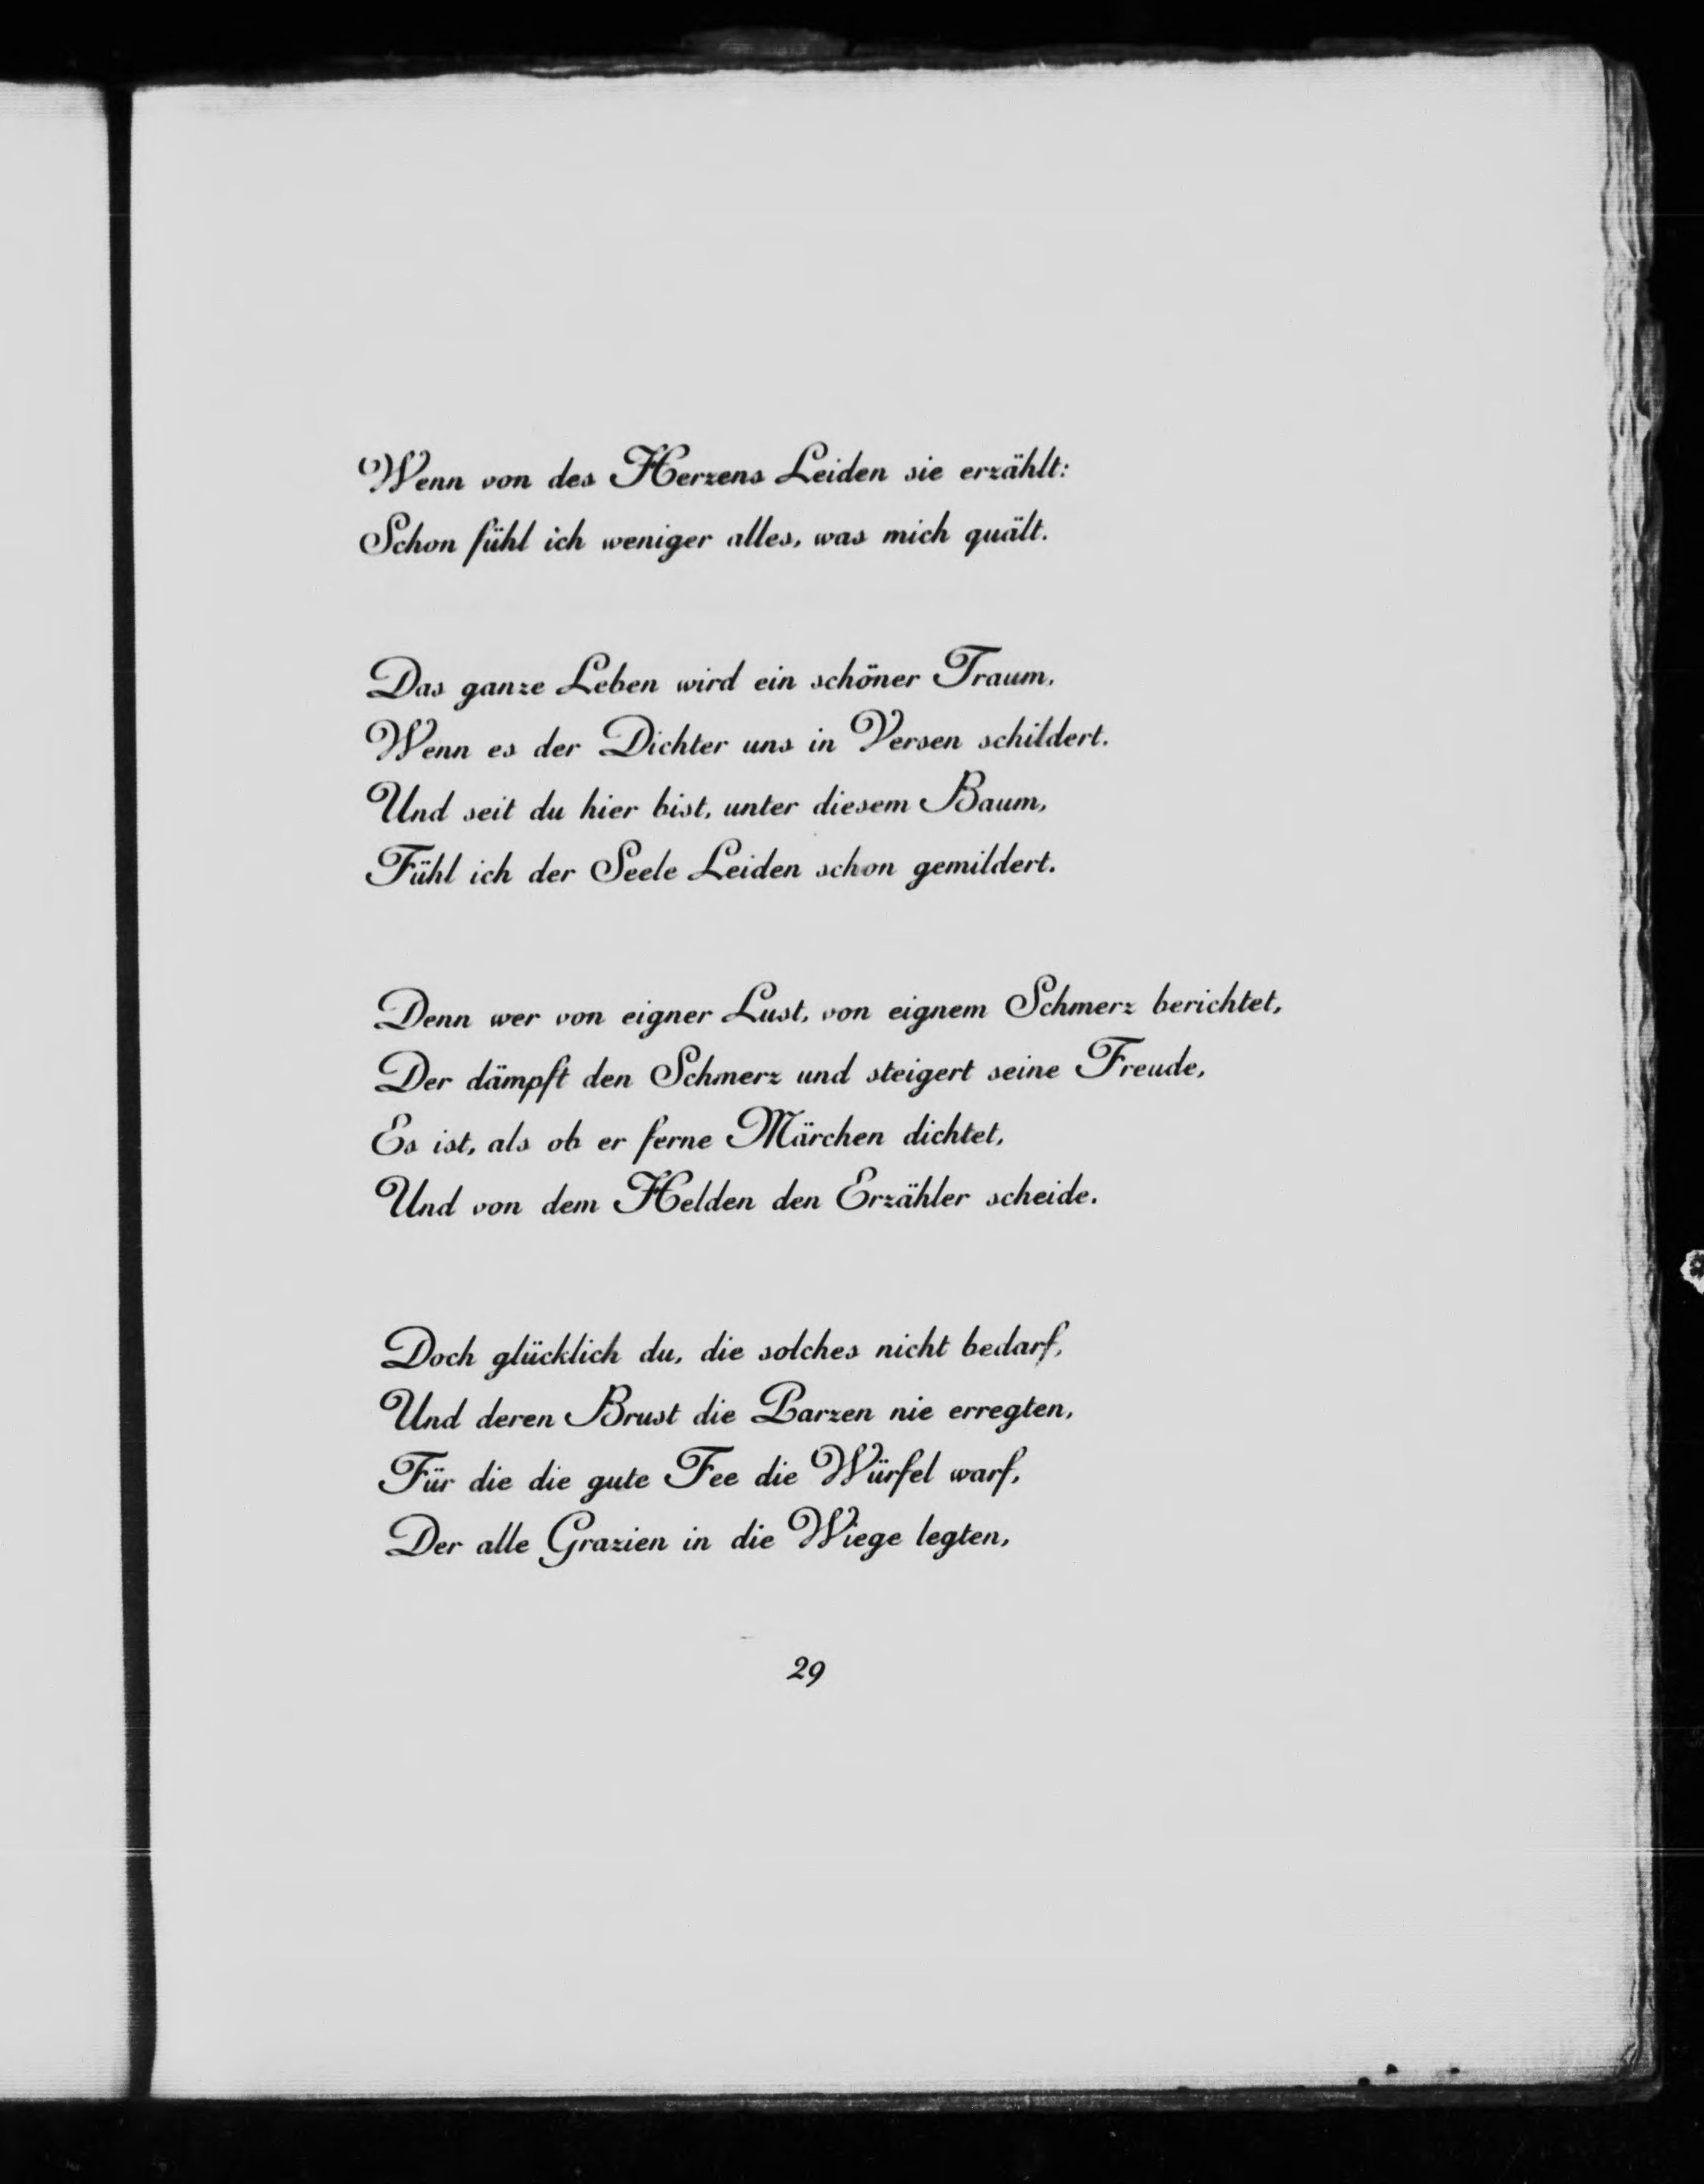 Wenn von des Herzens Leiden sie erzählt:
Schon fühl ich weniger alles, was mich quält.
Das ganze Leben wird ein schöner Traum,
Wenn es der Dichter uns in Versen schildert.
Und seit du hier bist, unter diesem Baum,
Fühl ich der Seele Leiden schon gemildert.
Denn wer von eigner Lust, von eignem Schmerz berichtet,
Der dämpft den Schmerz und steigert seine Freude,
Es ist, als ob er ferne Märchen dichtet,
Und von dem Helden den Erzähler scheide.
Doch glücklich du, die solches nicht bedarf,
Und deren Brust die Parzen nie erregten,
Für die die gute Fee die Würfel warf,
Der alle Grazien in die Wiege legten,
29